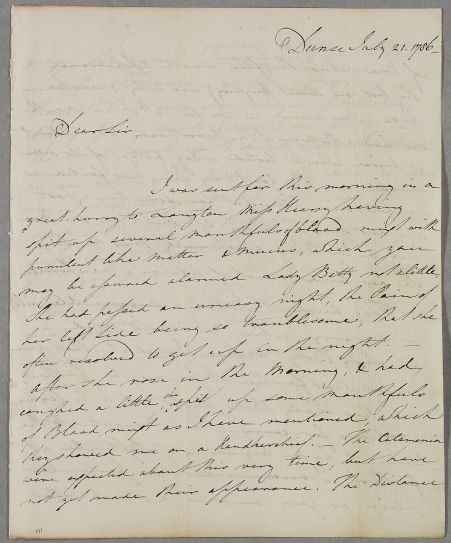 Dunse July 21 1786
Dear Sir,
I was sent for this morning in a
great hurry to Langton, Miss Hearsy having
spit up several mouthfuls of blood, mixt with
purulent like matter & mucus, which you
may be assured alarmed Lady Betty not a little.
She had passed an uneasy night, the Pain of
her left side being so troublesome, that she
often resolved to get up in the night. —
After she rose, in the Morning, & had
coughed a little, she spit up some mouthfuls
of Blood, mixt as I have mentioned, which
they showed me on a Handkerchief. — The Catamenia
were expected about this very time, but have
not yet made their appearance. The Distance